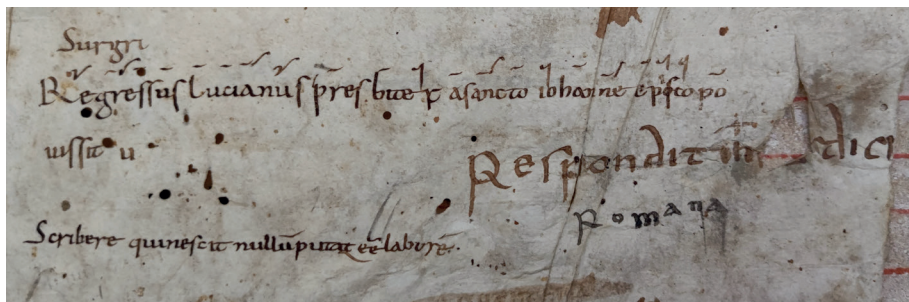 Surgri
Regressus lucianus presbiter asancto iohanne epscopo
iussit u
Respondit ihs dici
Romana
Scribere quinescit nullum putat ee labore.